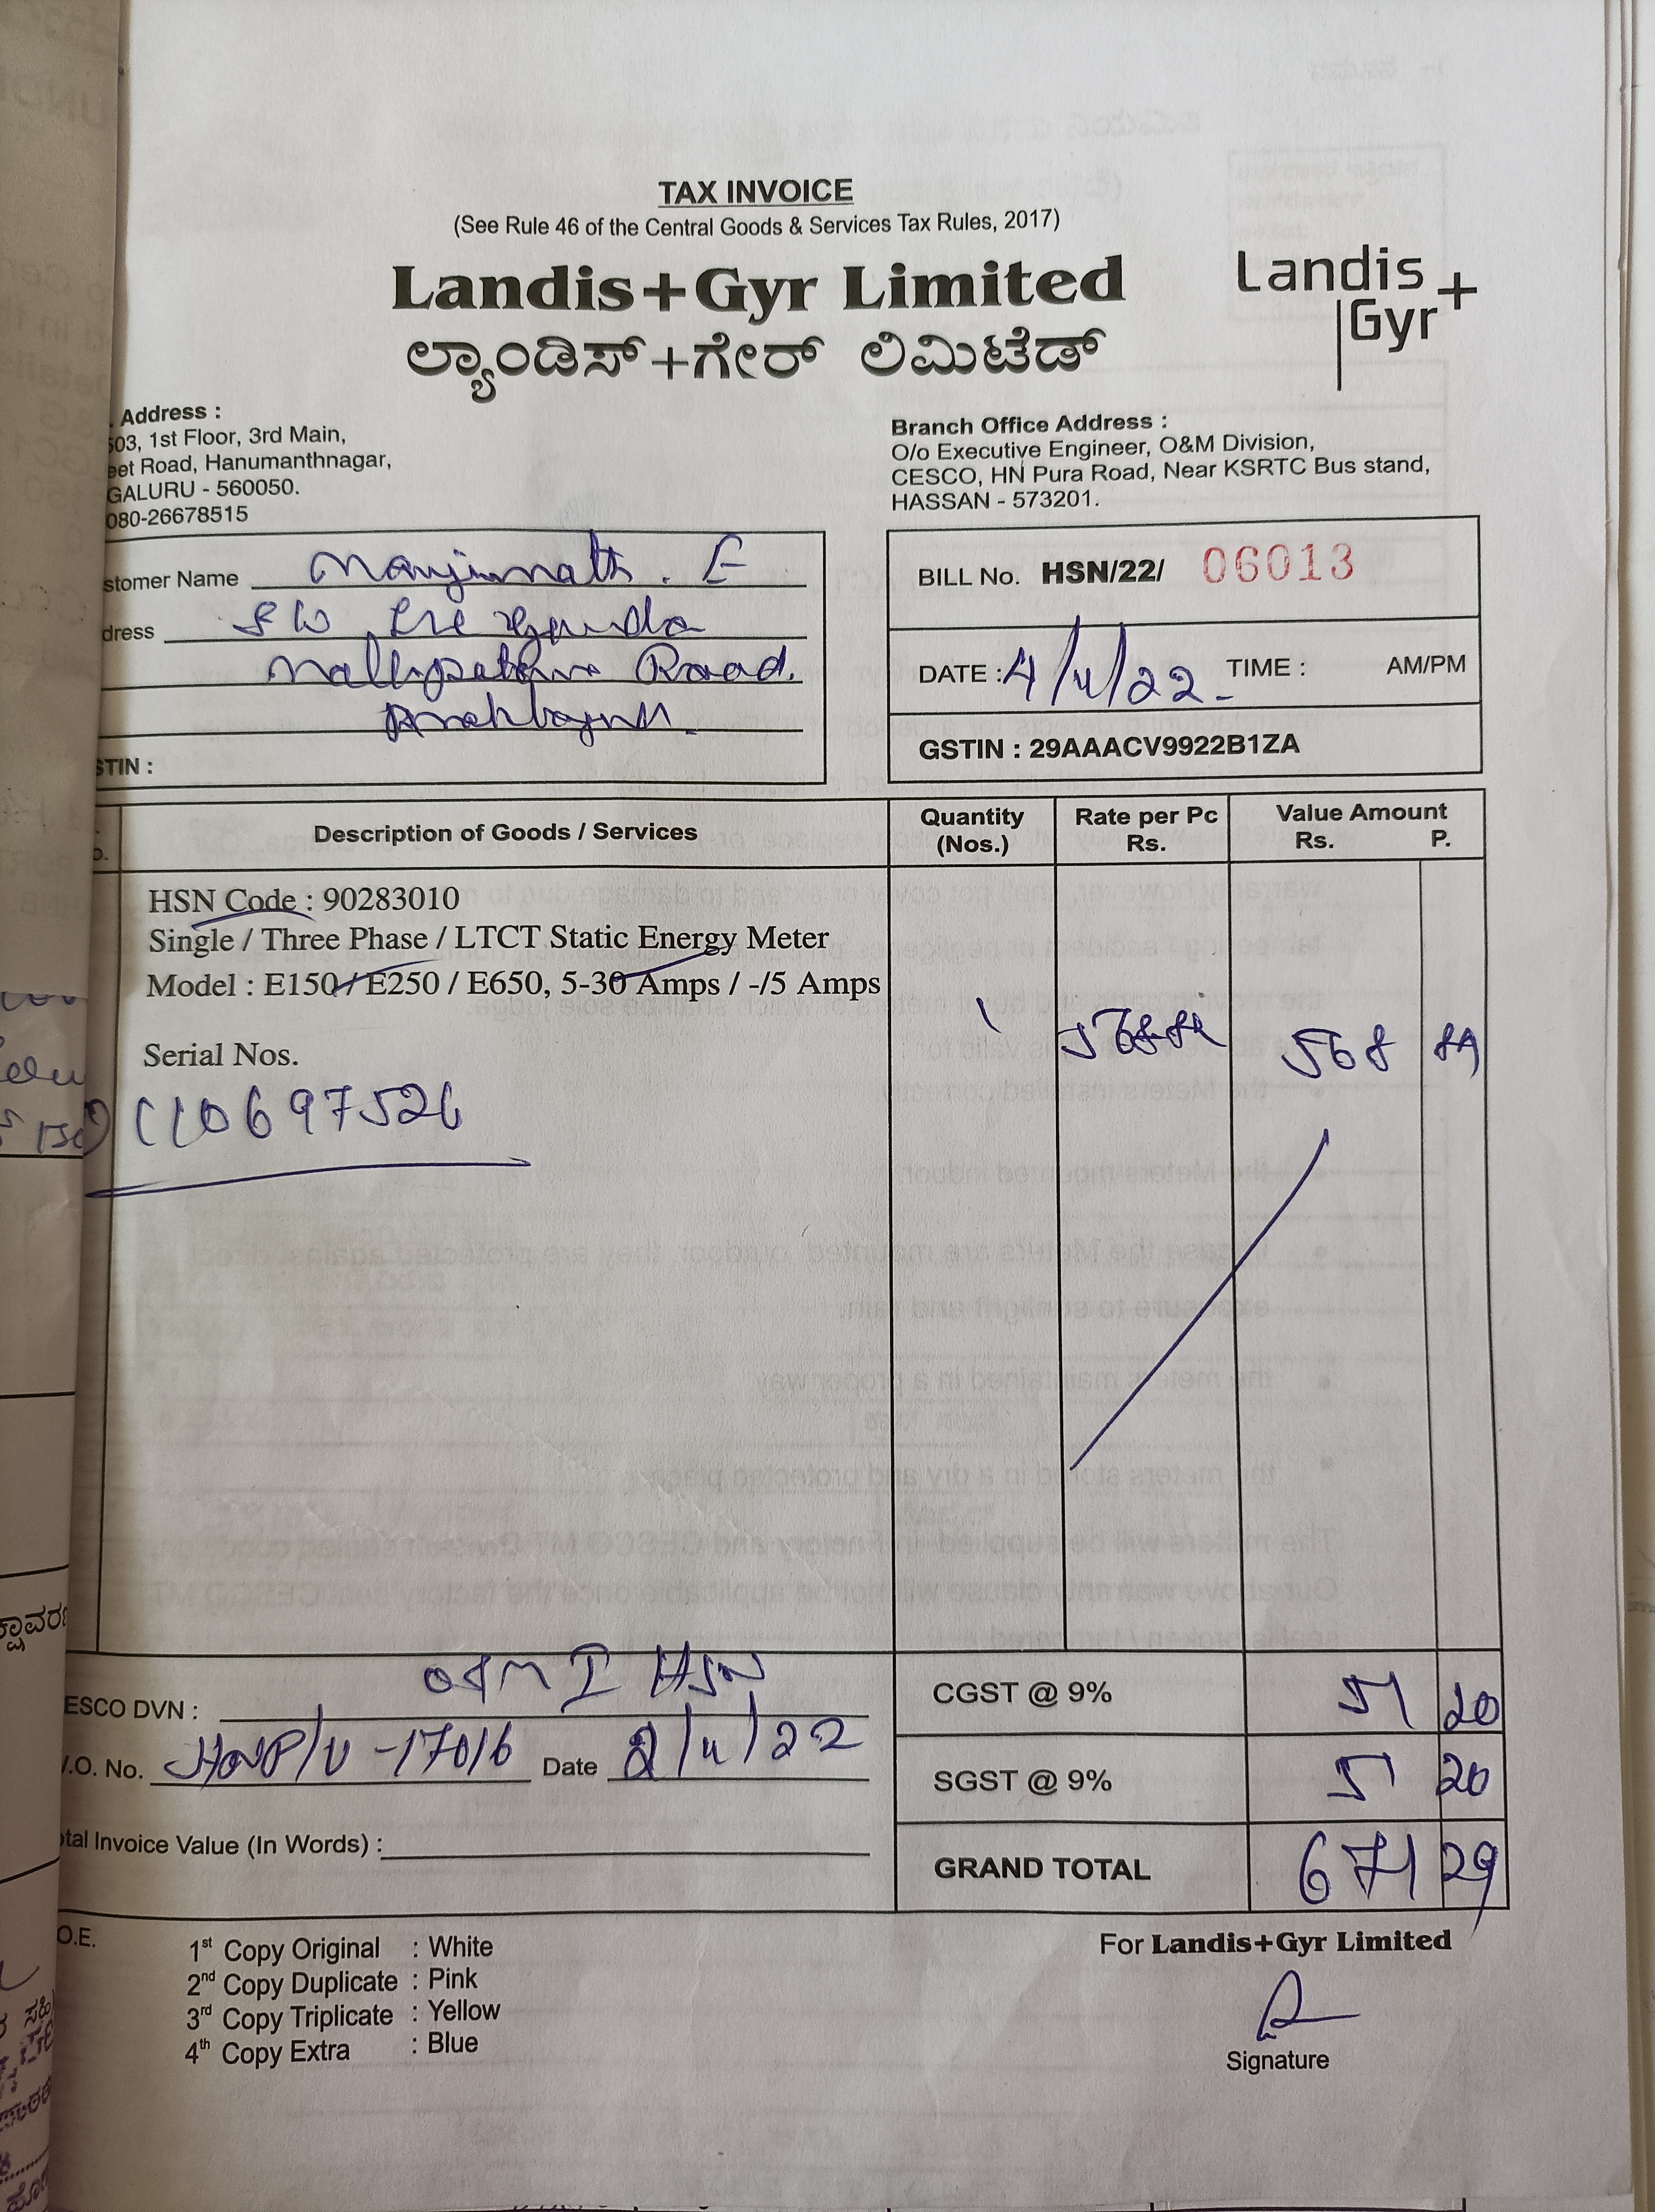 TAX INVOICE
(See Rule 46 of the Central Goods & Services Tax Rules, 2017)
Landis+Gyr Limited
ಲ್ಯಾಂಡಿಸ್+ಗೇರ್ ಲಿಮಿಟೆಡ್
Landis
Gyr+
. Address :
503, 1st Floor, 3rd Main,
eet Road, Hanumanthnagar,
GALURU - 560050.
080-26678515
Branch Office Address :
O/o Executive Engineer, O&M Division,
CESCO, HN Pura Road, Near KSRTC Bus stand,
HASSAN - 573201.
stomer Name Manjunath. E
dress S/o
Road.
STIN :
BILL No. HSN/22/ 06013
DATE : 4/4/22 TIME : AM/PM
GSTIN : 29AAACV9922B1ZA
Description of Goods / Services Quantity (Nos.) Rate per Pc Rs. Value Amount Rs. P.
HSN Code : 90283010
Single / Three Phase / LTCT Static Energy Meter
Model : E150 / E250 / E650, 5-30 Amps / -/5 Amps
1 568 568 89
Serial Nos.
110697526
ESCO DVN : O&M I HSN
.O. No. 17016 Date 2/4/22
tal Invoice Value (In Words) :
CGST @ 9% 51 20
SGST @ 9% 51 20
GRAND TOTAL 671 29
.O.E.
1st Copy Original : White
2nd Copy Duplicate : Pink
3rd Copy Triplicate : Yellow
4th Copy Extra : Blue
For Landis+Gyr Limited
Signature